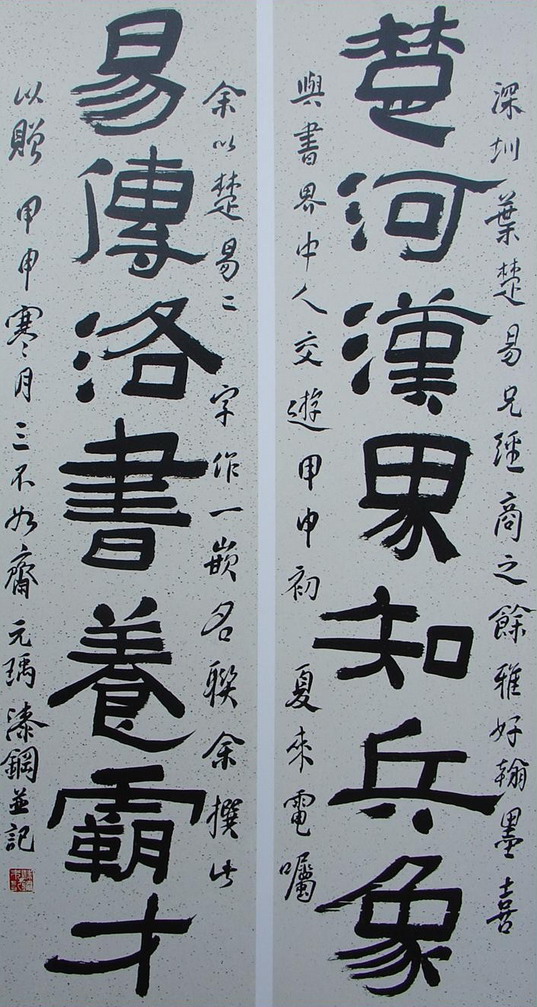 深圳葉楚易兄經商之餘雅好翰墨喜
楚河漢界知兵象
與書界中人交遊甲申初夏來電囑
余以楚易二字作一嵌名聯余撰此
易傳洛書養霸才
以贈甲申寒月三不如齋元瑀漆鋼並記